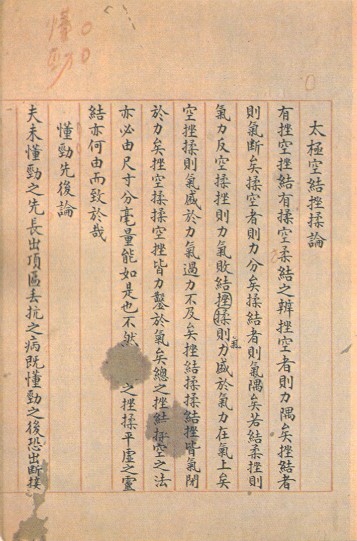 懂勁
太極空結挫揉論
有挫空挫結有揉空柔結之辨挫空者則力隅矣挫結者
則氣断矣揉空者則力分矣揉結者則氣隅矣若結柔挫則
氣力反空揉挫則力氣敗結挫揉則力盛於氣力在氣上矣
空挫揉則氣盛於力氣過力不及矣挫結揉揉結挫皆氣閉
於力矣挫空揉揉空挫皆力鑿於氣矣總之挫結揉空之法
亦必由尺寸分毫量能如是也不然 之挫揉平虛之靈
結亦何由而致於哉
懂勁先後論
夫未懂勁之先長出頂匾丢抗之病既懂勁之後恐出断接